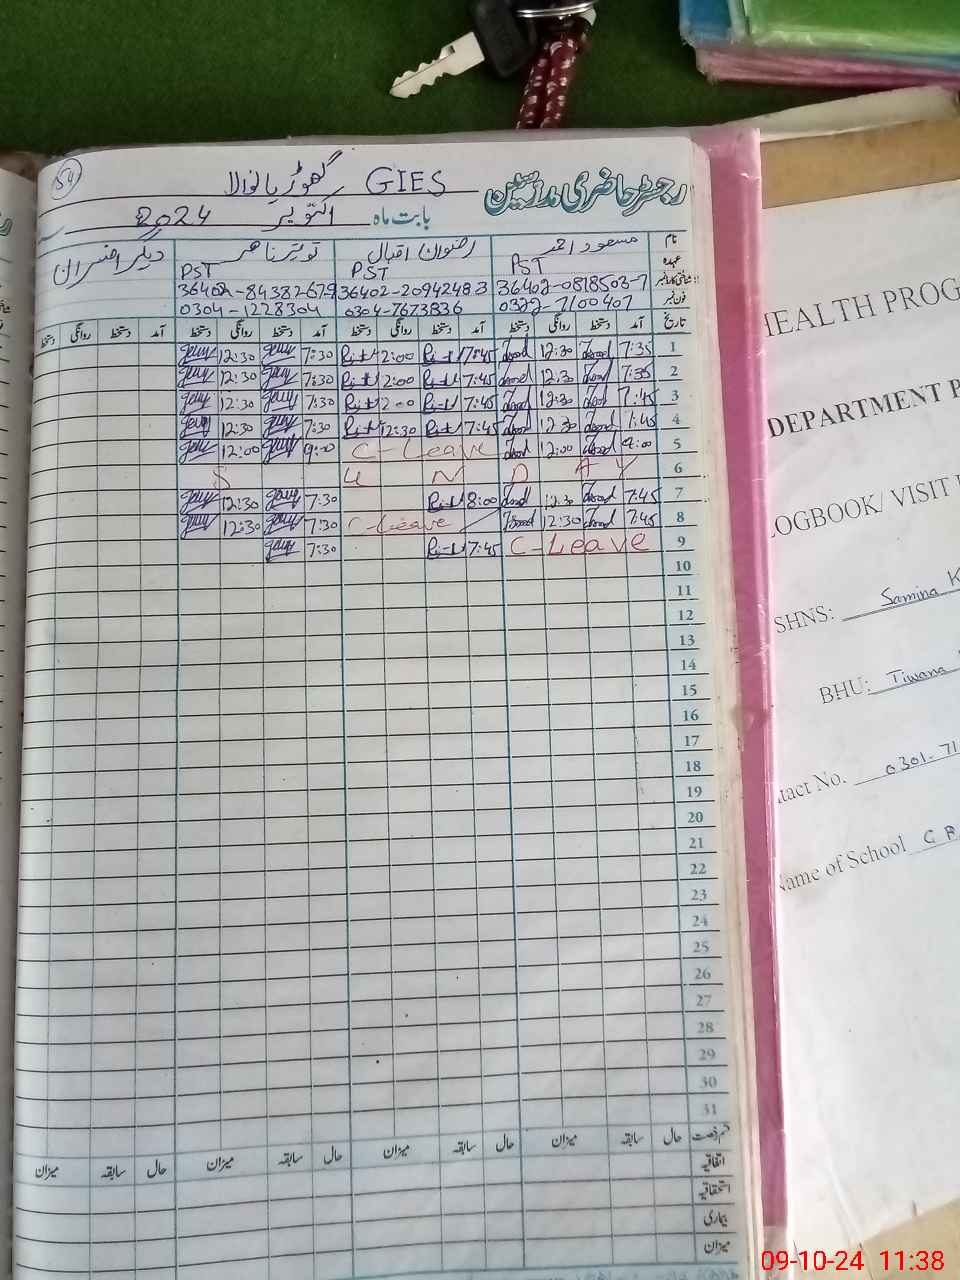 54
گھوڑیانوالا GIES رجسٹر حاضری مدرسین
2024 اکتوبر بابت ماہ
نام مسعود احمد رضوان اقبال دیگر افسران
عہدہ PST PST PST
36402-0818503-7 36402-2094248 3
فون نمبر 0322-7100407 0304-7673836 0304-1228304
تاریخ آمد دستخط روانگی دستخط آمد دستخط روانگی دستخط آمد دستخط روانگی دستخط آمد دستخط روانگی دستخط
1 7:35 12:30 7:45 2:00 7:30 12:30
2 7:35 12:30 7:45 2:00 7:30 12:30
3 7:45 12:30 7:45 2:00 7:30 12:30
4 7:45 12:30 7:45 12:30 7:30 12:30
5 9:00 12:00 C-Leave 9:00 12:00
6 S U N D A Y
7 7:45 12:30 8:00 7:30 12:30
8 7:45 12:30 C-Leave 7:30 12:30
9 C-Leave 7:45 7:30
10
11
12
13
14
15
16
17
18
19
20
21
22
23
24
25
26
27
28
29
30
31
قسم رخصت حال سابقہ میزان حال سابقہ میزان حال سابقہ میزان حال سابقہ میزان
اتفاقیہ
استحقاقیہ
بیماری
میزان
HEALTH PROG
DEPARTMENT P
LOGBOOK/ VISIT
SHNS: Samina K
BHU: Tiwana
tact No. 0301-71
Name of School G P
09-10-24 11:38